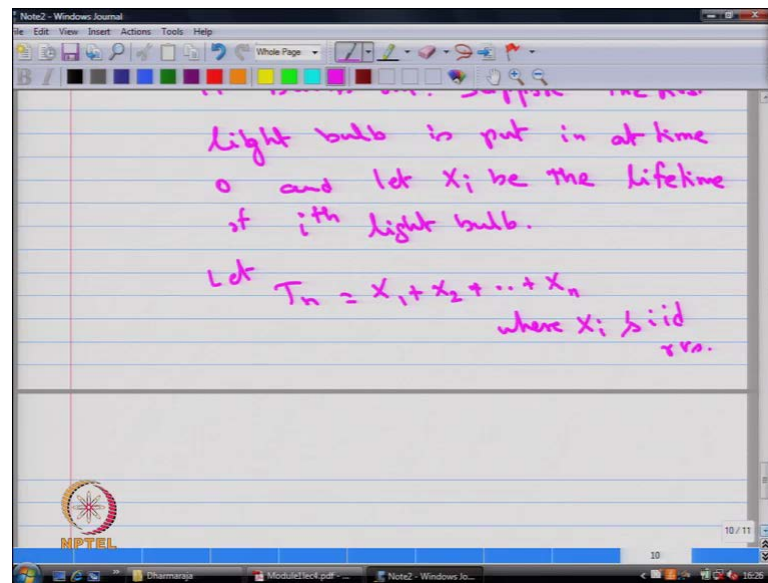 Note2 - Windows Journal
File Edit View Insert Actions Tools Help
Whole Page
B I
light bulb is put in at time
0 and let Xi be the lifetime
of ith light bulb.
Let
Tn = X1 + X2 + .. + Xn
where Xi's iid
rvs.
NPTEL
10 / 11
10
Dharmaraja
Module1lec4.pdf - ...
Note2 - Windows Jo...
16:26